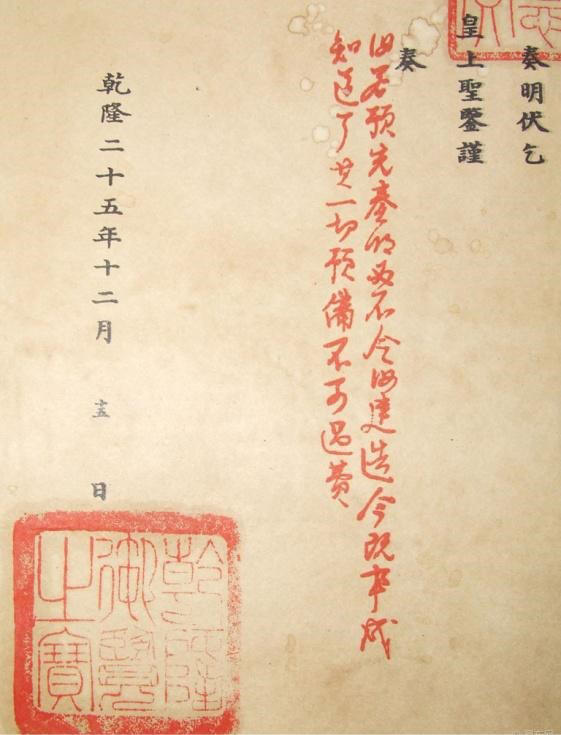 奏明伏乞
皇上聖鑒謹
奏
汝若預先奏明 不令汝建造今既事成
知道了其一切預備不可過費
乾隆二十五年十二月 十五 日
乾隆御覽之寶